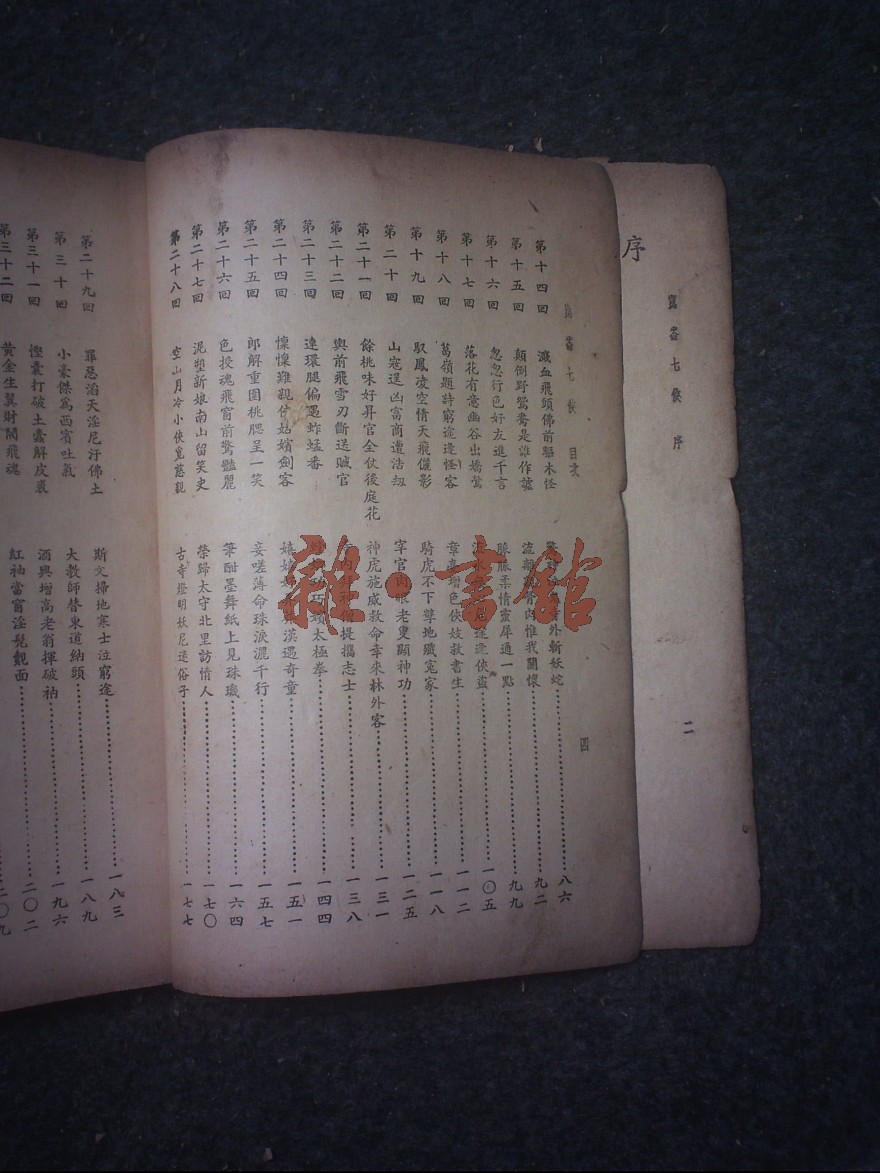 序
七俠 序
二
七俠 目次
第十四回 濺血飛頭佛前驅木怪 外斬妖蛇 八六
第十五回 顛倒野鴛鴦是誰作謔 惟我關懷 九二
第十六回 怱怱行色好友進千言 脈脈柔情靈犀通一點 九九
第十七回 落花有意幽谷出嬌鶯 逢俠盜 一〇五
第十八回 葛嶺題詩窮途逢怪客 章臺增色俠妓救書生 一一二
第十九回 馭鳳凌空情天飛儷影 騎虎不下雙地殲冤家 一一八
第二十回 山寇逞凶富商遭浩刼 宰官肉眼老叟顯神功 一二五
第二十一回 餘桃味好昇官全仗後庭花 神虎施威救命幸來林外客 一三一
第二十二回 輿前飛雪刃斷送贓官 提攜志士 一三八
第二十三回 連環腿偏遇蚱蜢番 太極拳 一四四
第二十四回 懍懍難親竹姑嬪劍客 漢遇奇童 一五一
第二十五回 郎解重圍桃腮呈一笑 妾嗟薄命珠淚濺千行 一五七
第二十六回 色授魂飛窗前驚豔麗 筆酣墨舞紙上見珠璣 一六四
第二十七回 泥塑新娘南山留笑史 榮歸太守北里訪情人 一七〇
第二十八回 空山月冷小俠覓慈親 古寺燈明妖尼迷俗子 一七七
四
第二十九回 罪惡滔天淫尼汙佛土 斯文掃地寒士泣窮途 一八三
第三十回 小豪傑爲西賓吐氣 大教師替東道納頭 一八九
第三十一回 慳囊打破土豪解皮裘 酒興增高老翁揮破衲 一九六
第三十二回 黃金生翼財閣飛魂 紅袖當窗淫髡覿面 二〇二
二〇九
雜·書館